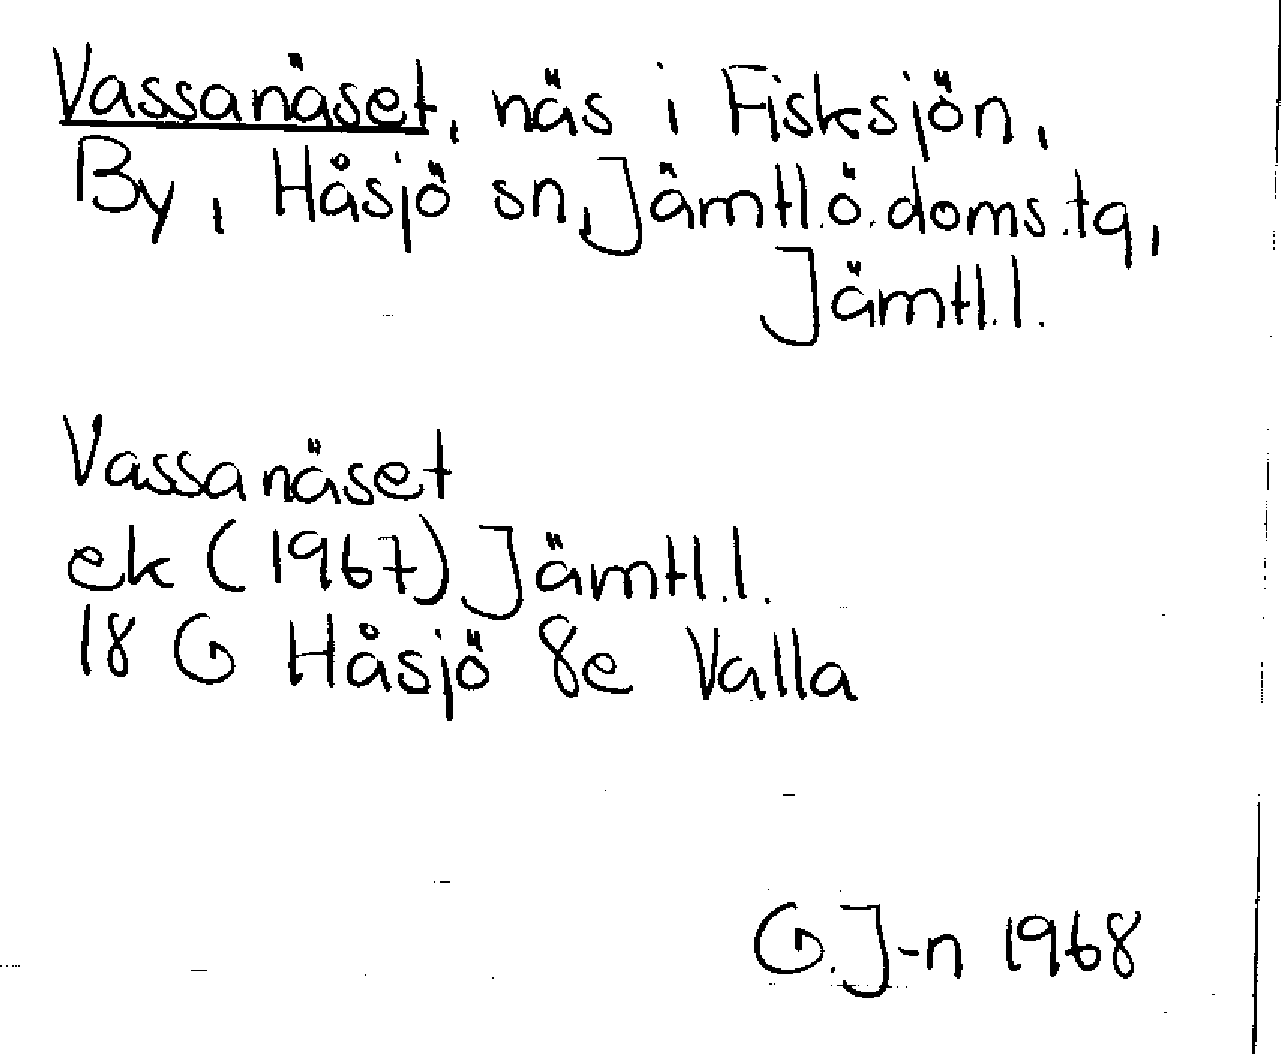 Vassanäset, näs i Fisksjön,
By, Håsjö sn, Jämtl.ö.doms.tg,
Jämtl.l.
Vassanäset
ek (1967) Jämtl.l.
18 G Håsjö 8e Valla
G.J-n 1968